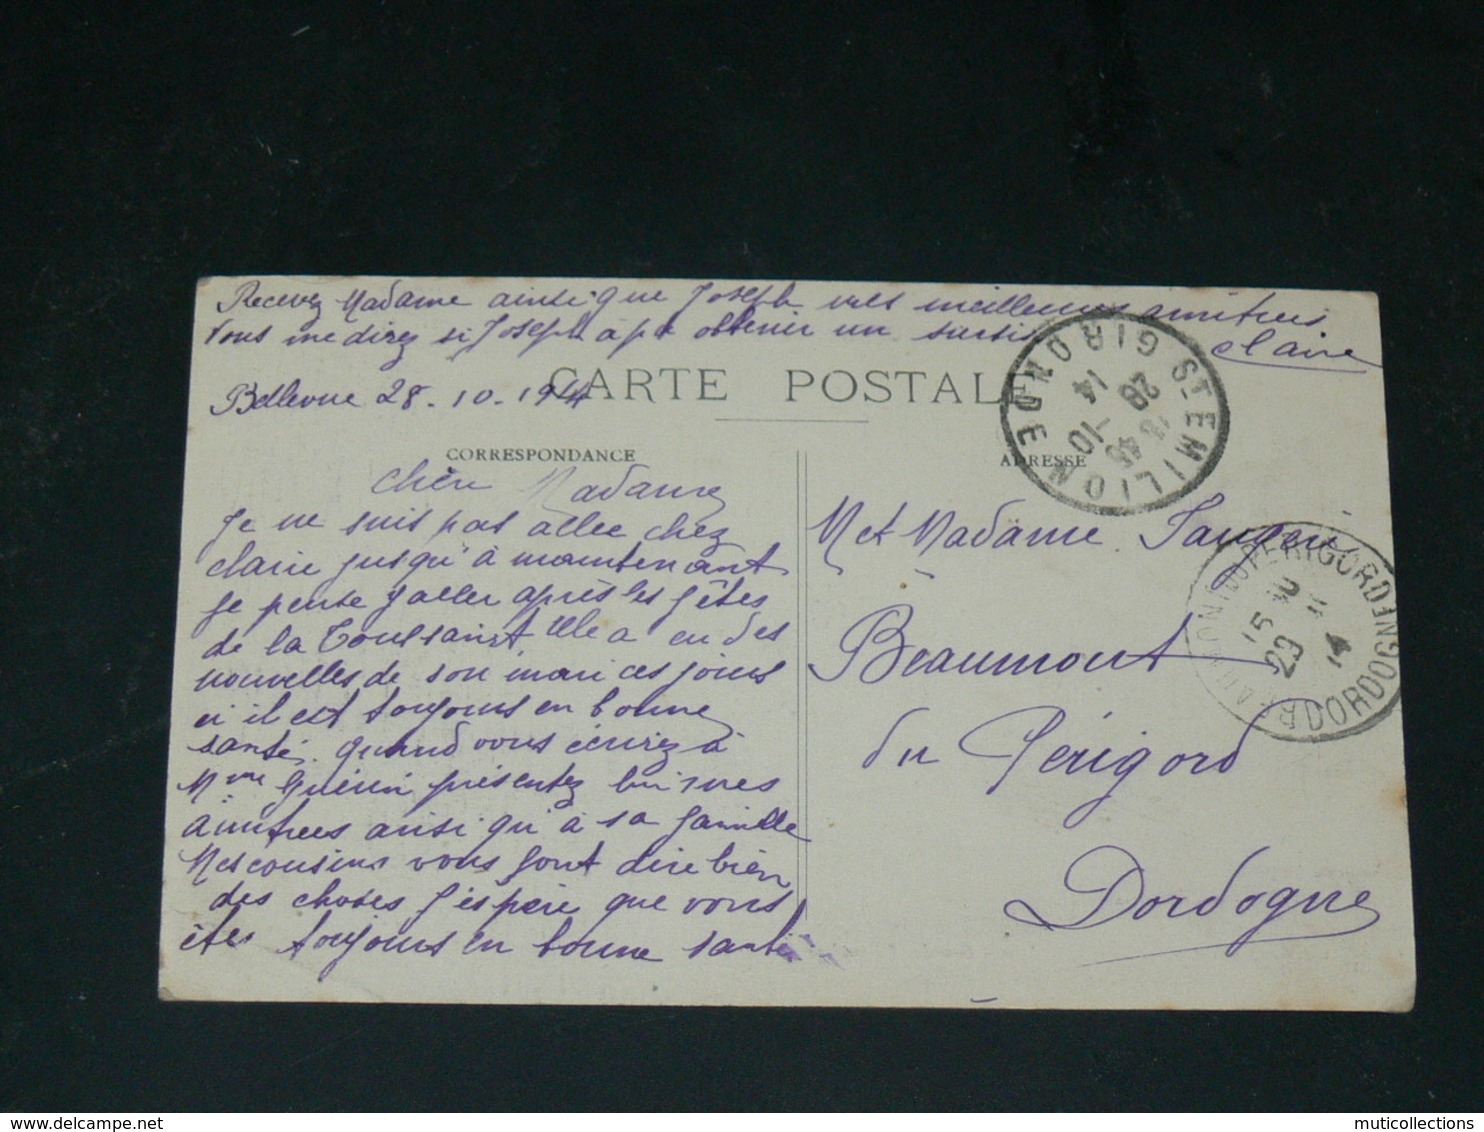 Recevez Madame ainsi que Joseph mes meilleures amitiés
vous me direz si Joseph à pu obtenir un sursis
Claire
Bellevue 28-10-1914
CARTE POSTALE
CORRESPONDANCE
ADRESSE
Chère Madame
Je ne suis pas allée chez
claire jusqu'à maintenant
je pense y aller après les fêtes
de la Toussaint Elle a eu des
nouvelles de son mari ces jours
ci il est toujours en bonne
santé. Quand vous écrirez à
Mme Guérin présentez lui mes
amitiées ainsi qu'à sa famille
Mes cousins vous font dire bien
des choses J'espère que vous
êtes toujours en bonne santé
M et Madame
Beaumont
du Périgord
Dordogne
ST-EMILION GIRONDE
13 45
28 -10
14
DU PERIGORD DORDOGNE
15
29
14
muticollections